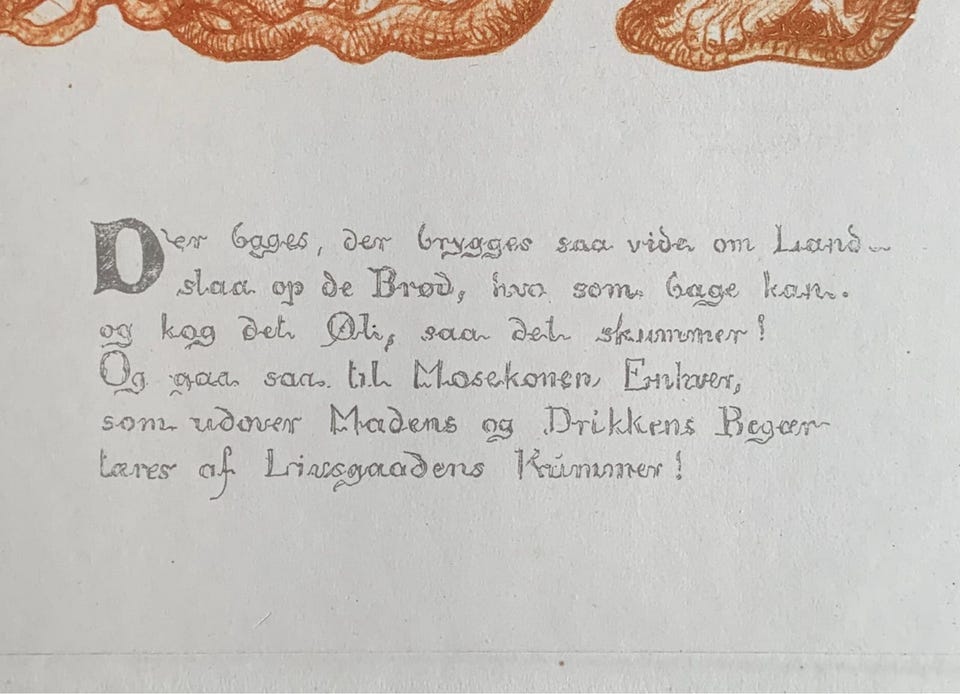 Der bages, der brygges saa vide om Land-
slaa op de Brød, hvo som bage kan.
og kog det Øll, saa det skummer!
Og gaa saa til Mosekonen Enhver,
som udover Madens og Drikkens Begær
tæres af Livsgaadens Kummer!